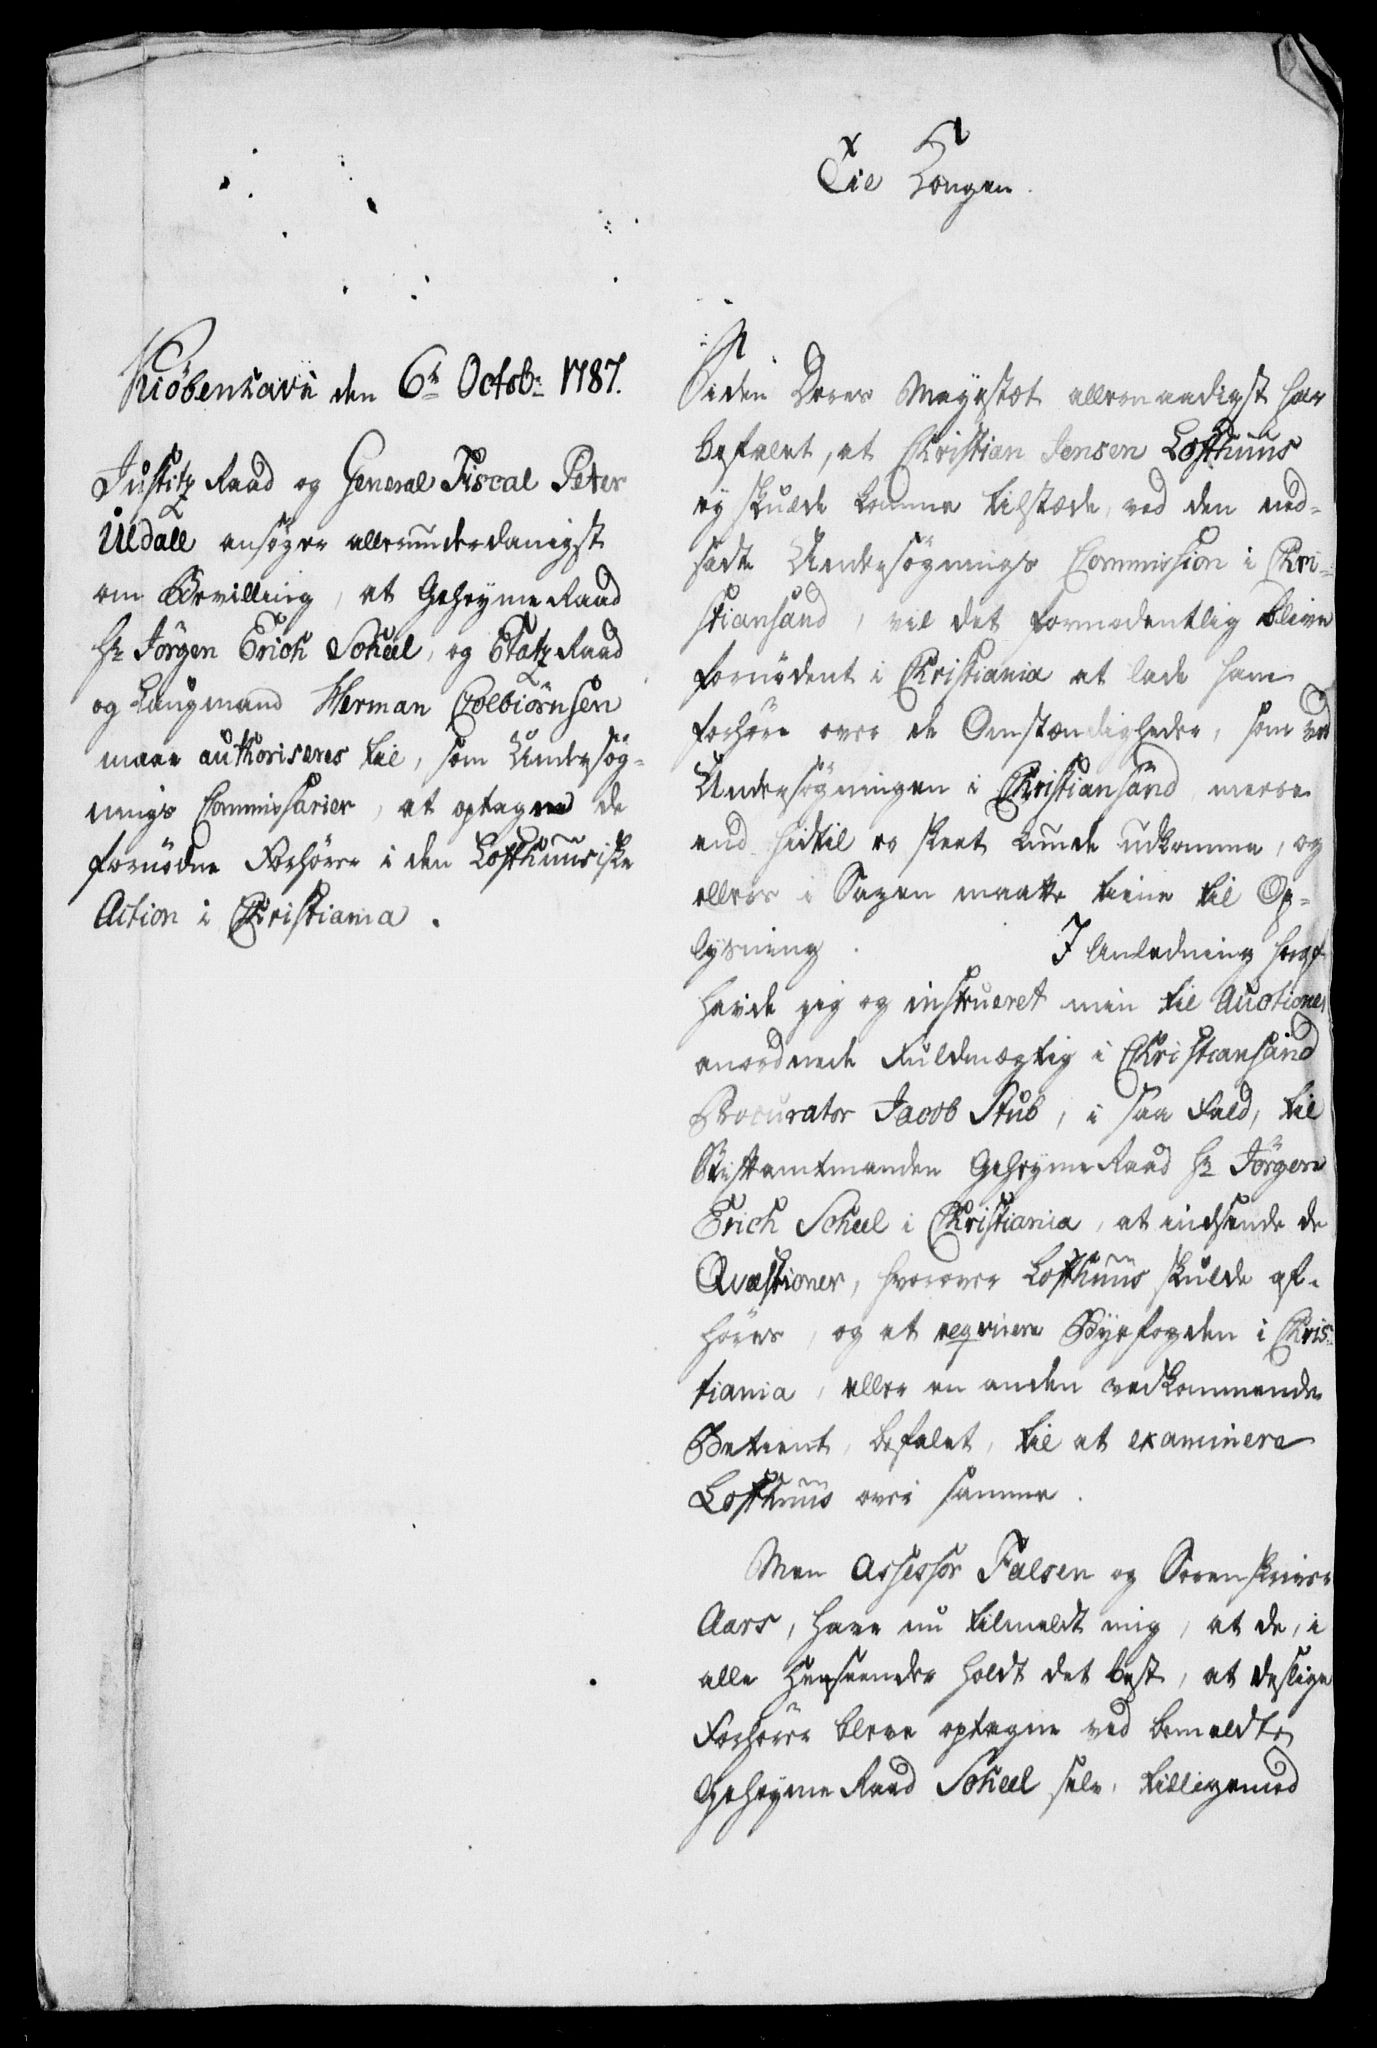 Til Kongen.
Kiöbenhavn den 6te Octob: 1787.
Justitz Raad og General Fiscal Peter
Uldall ansøger allerunderdanigst
om Bevilling, at Geheyme Raad
Hr Jörgen Erich Scheel, og Etatz Raad
og Laugmand Herman Colbiörnsen
maae authoriseres til, som Undersøg-
nings Commissarier, at optage de
fornødne Forhører i den Lofthuusiske
Action i Christiania.
Siden Deres Mayestæt allernaadigst har
befalet, at Christian Jensen Lofthuus
ey skulde komme tilstæde, ved den ned-
sadte Undersøgnings Commission i Chri-
stiansand, vil det formodentlig blive
fornødent i Christiania at lade ham
forhøre over de Omstændigheder, som ved
Undersøgningen i Christiansand meere
end hidtil er skeet kunde udkomme, og
ellers i Sagen maatte tiene til Op-
lysning. I Anledning heraf
havde jeg og instrueret min til Actionen
anordnede Fuldmægtig i Christiansand
Procurator Jacob Stub, i saa Fald, til
Stiftamtmanden Geheyme Raad Hr Jörgen
Erich Scheel i Christiania, at indsende de
Qvæstioner, hvorover Lofthuus skulde af-
høres, og at reqvirere Byefogden i Chris-
tiania, eller en anden vedkommende
Betient, befalet, til at examinere
Lofthuus over samme.
Men Assessor Falsen og Sorenskriver
Aars, have nu tilmeldt mig, at de, i
alle Henseender holdt det best, at deslige
Forhører bleve optagne ved bemeldte
Geheyme Raad Scheel selv, tilligemed